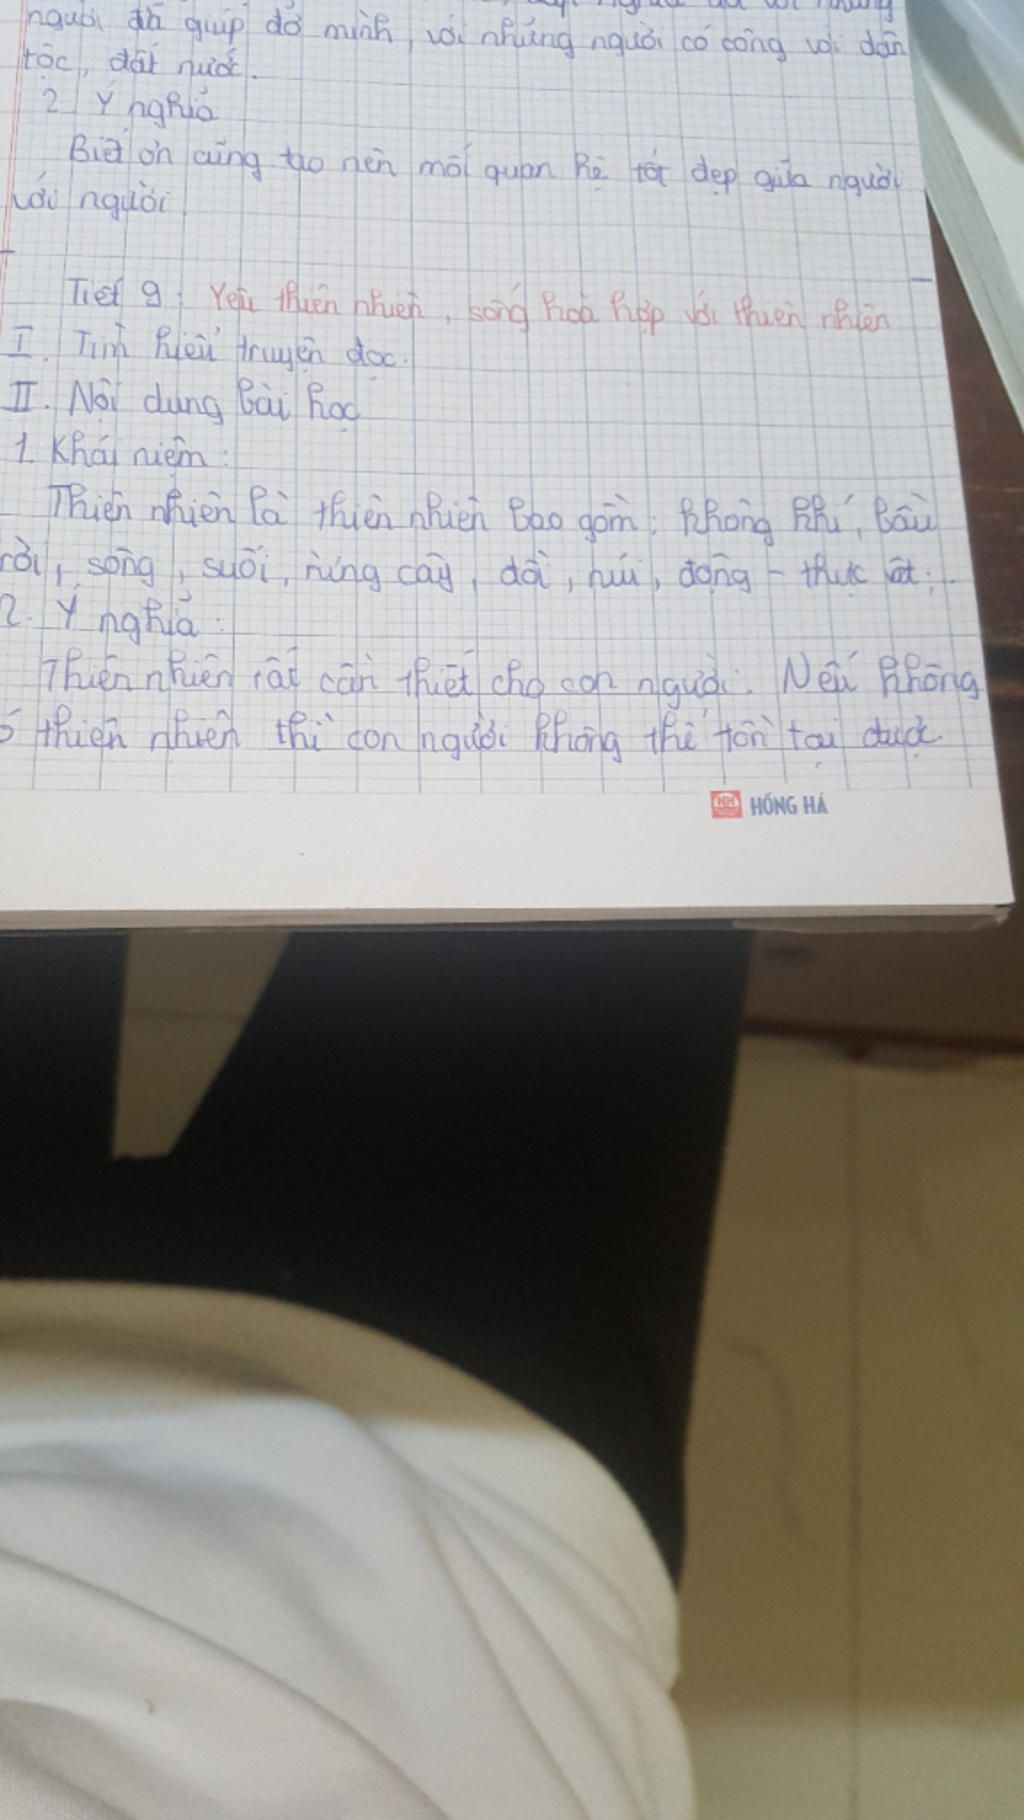 người đã giúp đỡ mình, với những người có công với dân
tộc, đất nước.
2. Ý nghĩa
Biết ơn cũng tạo nên mối quan hệ tốt đẹp giữa người
với người
Tiết 9: Yêu thiên nhiên, sống hoà hợp với thiên nhiên
I. Tìm hiểu truyện đọc.
II. Nội dung bài học
1. Khái niệm:
Thiên nhiên là thiên nhiên bao gồm: không khí, bầu
rời, sông, suối, rừng cây, đồi, núi, động - thực vật;..
2. Ý nghĩa:
Thiên nhiên rất cần thiết cho con người. Nếu không
ó thiên nhiên thì con người không thể tồn tại được
HỒNG HÀ